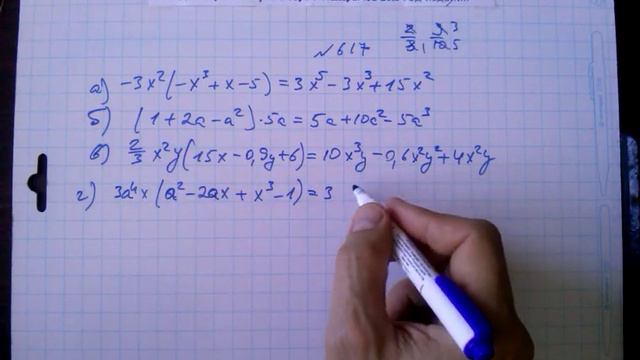 №617
2/3 · 9/10 3 5
а) -3x²(-x³+x-5) = 3x⁵-3x³+15x²
б) (1+2a-a²)·5a = 5a+10a²-5a³
в) 2/3 x²y(15x-0,9y+6) = 10x³y-0,6x²y²+4x²y
г) 3a⁴x(a²-2ax+x³-1) = 3